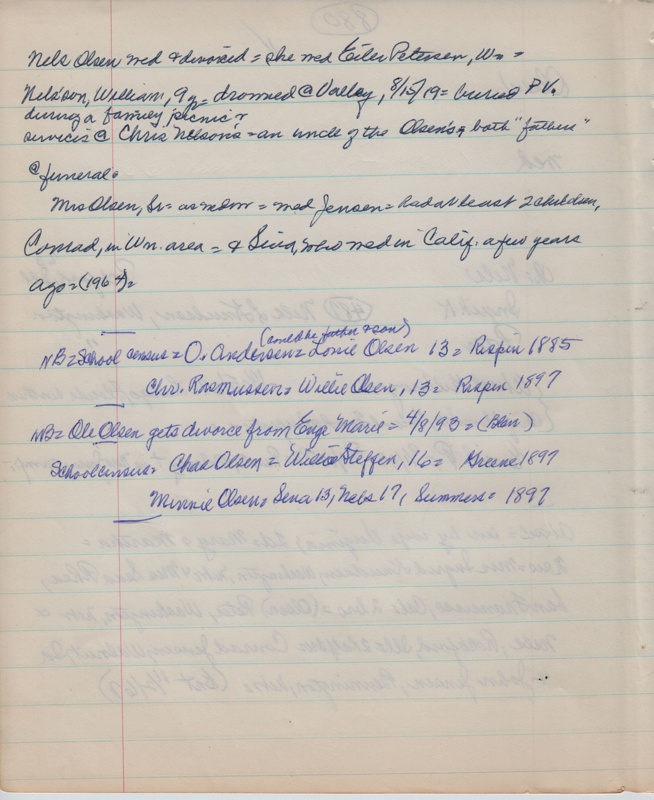 Nels Olsen med & divorced = she med Eiler Petersen, Wn =
Nelson, William, 9 y = drowned @ Valley, 8/15/19 = buried P.V.
during a family picnic &
services @ Chris Nelson's = an uncle of the Olsen's & both "fathers"
@ funeral =
Mrs Olsen, Sr = as wdow = med Jensen = had at least 2 children,
Conrad, in Wn. area = & Sina, who med in Calif. a few years
ago = (1964) =
(could be father & son)
NB = School census = O. Andersen = Louie Olsen 13 = Rispin 1885
Chr. Rasmussen = Willie Olsen, 13 = Rispin 1897
NB = Ole Olsen gets divorce from Enge Marie = 4/8/93 = (Blair)
School census = Chas Olsen = Willie Steffen, 16 = Greene 1897
Minnie Olsen = Sena 13, Nels 17, Summers = 1897